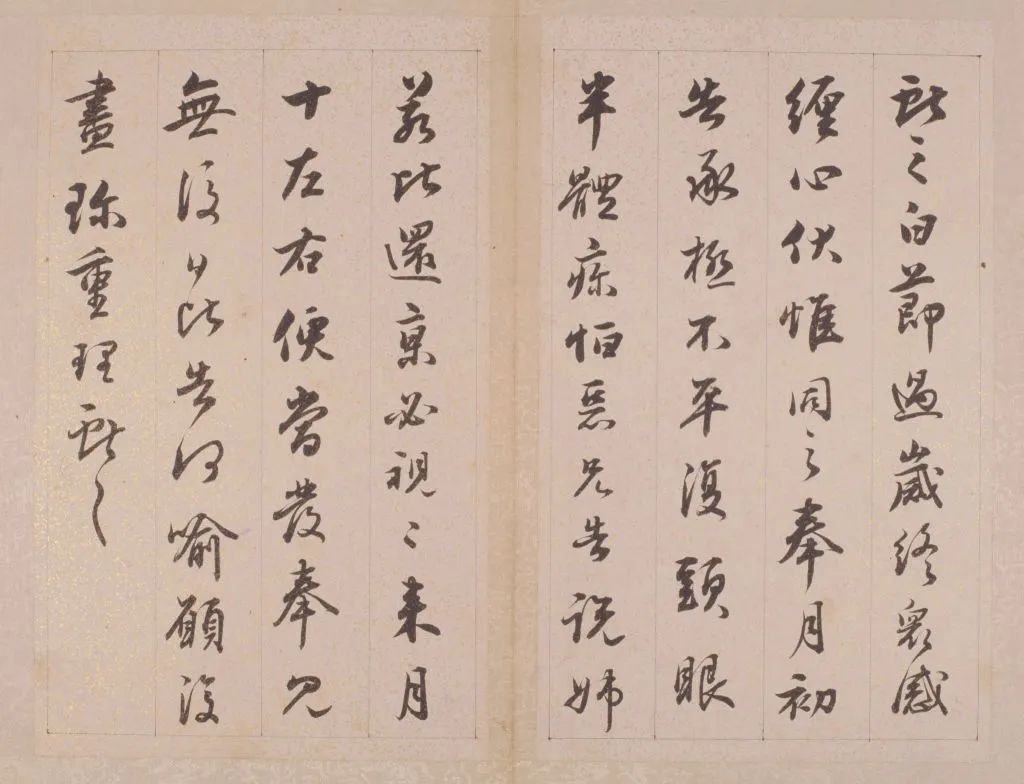 獻之白節過歲終眾感
纏心伏惟同之奉月初
告承極不平復頭眼
半體疼恒惡兄告說姊
若比還京必視之來月
十左右便當發奉見
無復此告何喻願復
盡珍重理獻之